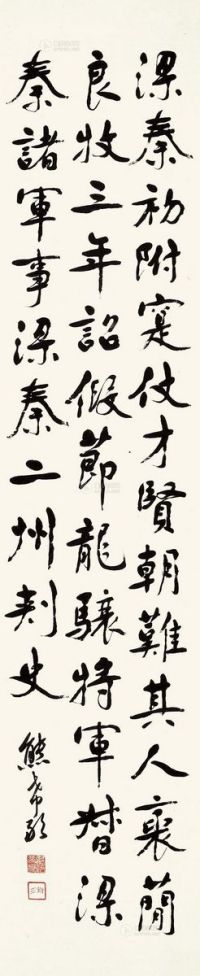 梁秦初附寔仗才賢朝難其人裏簡
良牧三年詔假節龍驤將軍督梁
秦諸軍事梁秦二州刺史
熊希齡